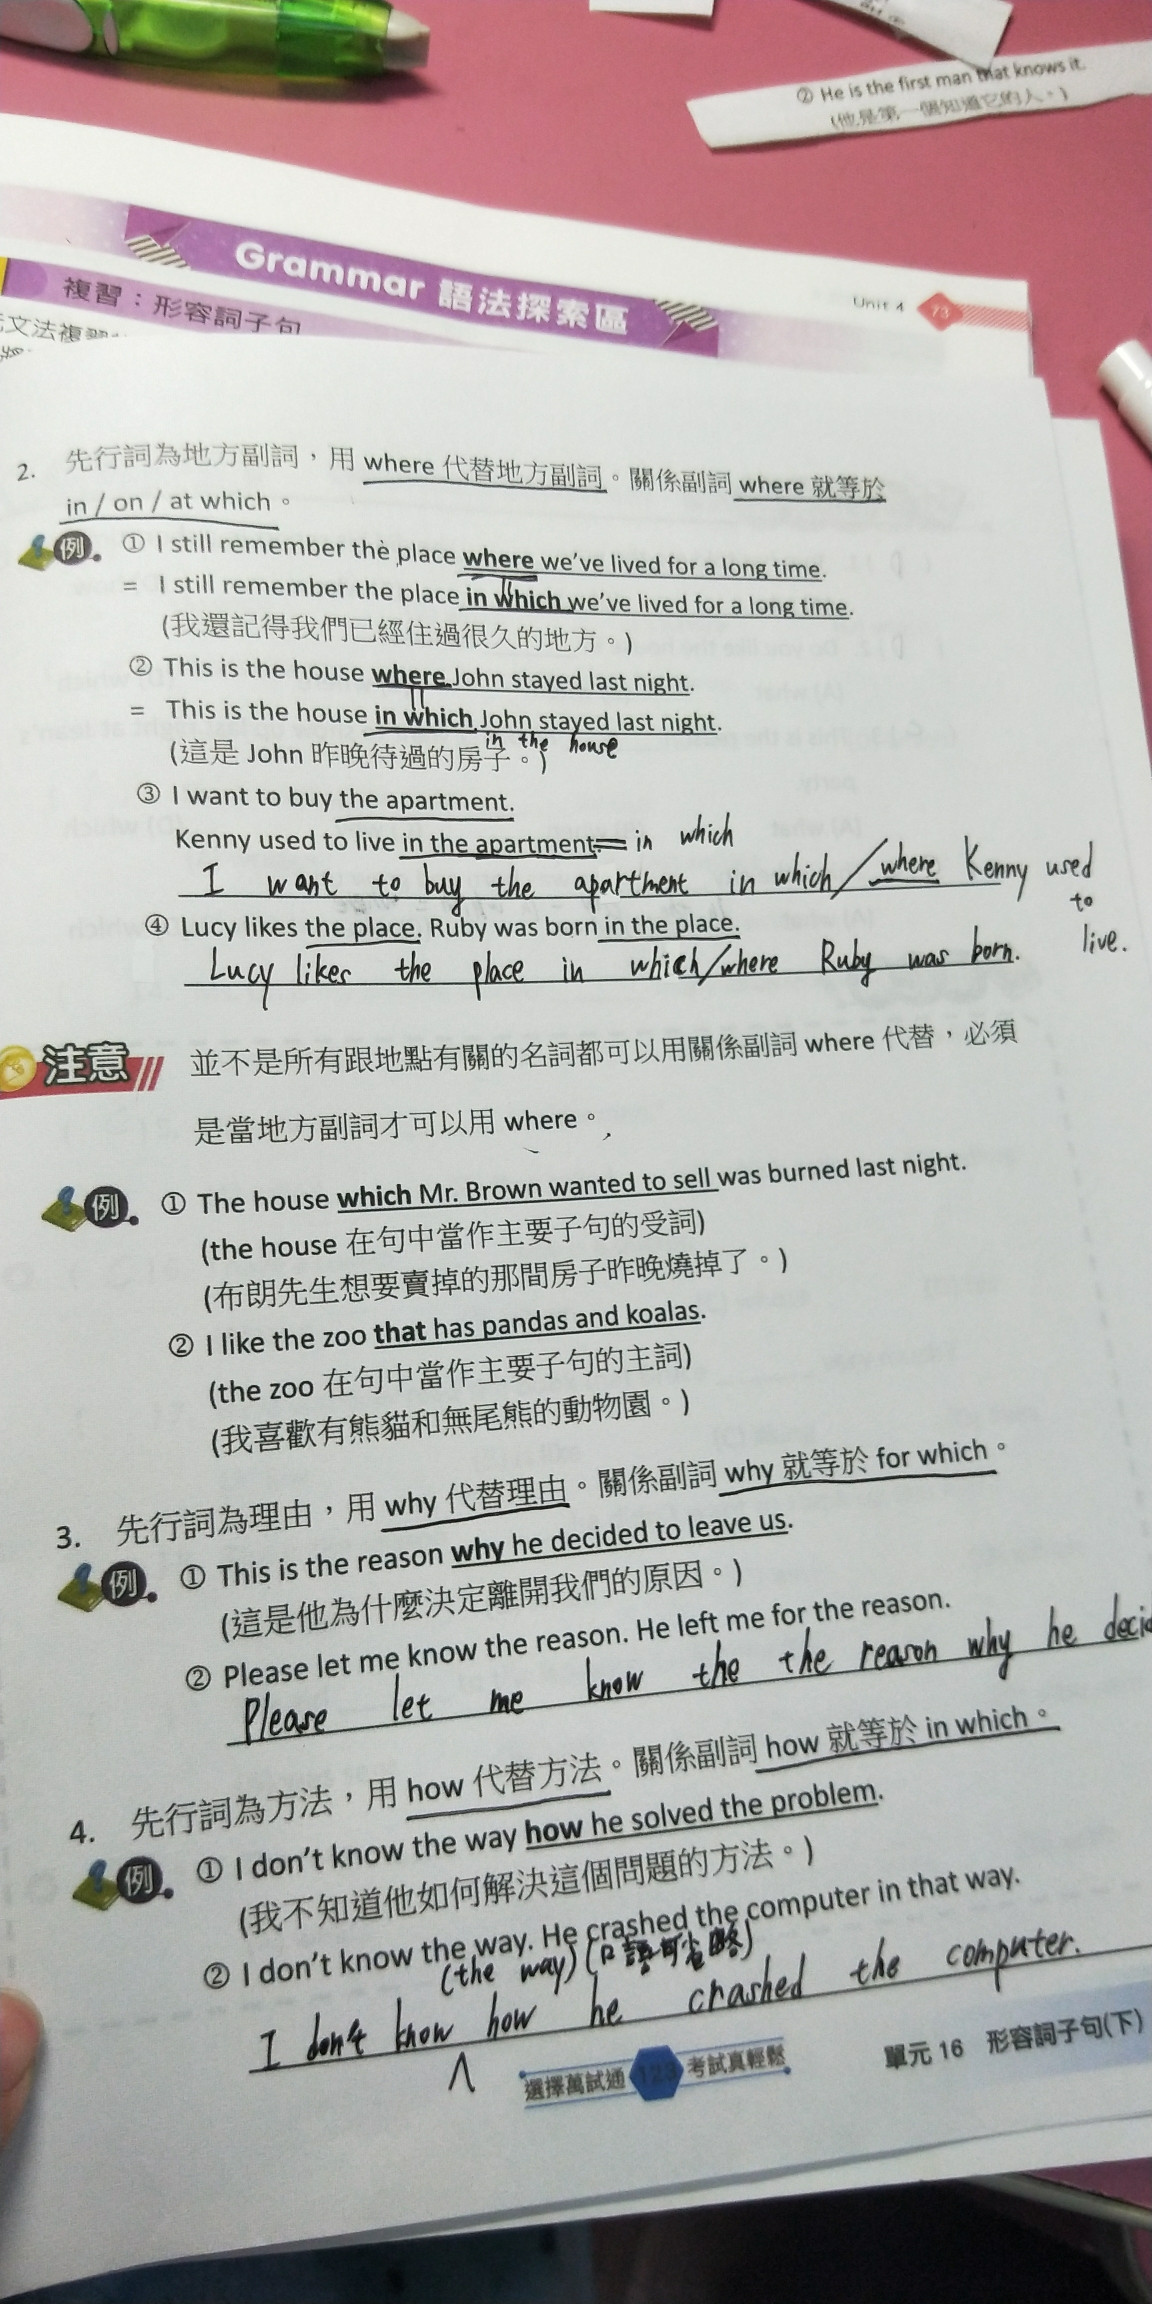 ② He is the first man that knows it.
(他是第一個知道它的人。)
Grammar 語法探索區
Unit 4 73
複習：形容詞子句
文法複習
2. 先行詞為地方副詞，用 where 代替地方副詞。關係副詞 where 就等於
in / on / at which。
例 ① I still remember the place where we've lived for a long time.
= I still remember the place in which we've lived for a long time.
(我還記得我們已經住過很久的地方。)
② This is the house where John stayed last night.
= This is the house in which John stayed last night.
in the house
(這是 John 昨晚待過的房子。)
③ I want to buy the apartment.
Kenny used to live in the apartment. = in which
I want to buy the apartment in which/where Kenny used
to
live.
④ Lucy likes the place. Ruby was born in the place.
Lucy likes the place in which/where Ruby was born.
注意 並不是所有跟地點有關的名詞都可以用關係副詞 where 代替，必須
是當地方副詞才可以用 where。
例 ① The house which Mr. Brown wanted to sell was burned last night.
(the house 在句中當作主要子句的受詞)
(布朗先生想要賣掉的那間房子昨晚燒掉了。)
② I like the zoo that has pandas and koalas.
(the zoo 在句中當作主要子句的主詞)
(我喜歡有熊貓和無尾熊的動物園。)
3. 先行詞為理由，用 why 代替理由。關係副詞 why 就等於 for which。
例 ① This is the reason why he decided to leave us.
(這是他為什麼決定離開我們的原因。)
② Please let me know the reason. He left me for the reason.
Please let me know the the reason why he decid
4. 先行詞為方法，用 how 代替方法。關係副詞 how 就等於 in which。
例 ① I don't know the way how he solved the problem.
(我不知道他如何解決這個問題的方法。)
② I don't know the way. He crashed the computer in that way.
(the way) (口語可省略)
I don't know how he crashed the computer.
選擇萬試通 123 考試真輕鬆
單元 16 形容詞子句(下)